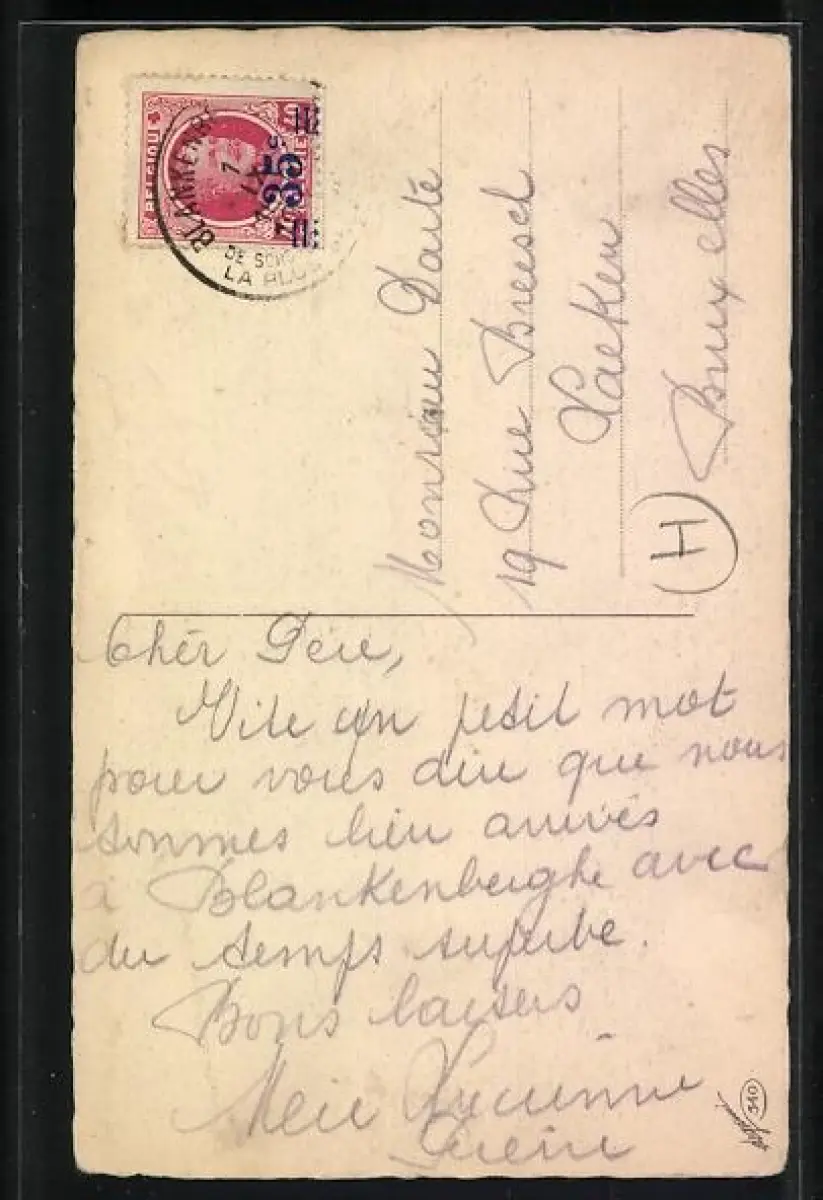 BELGIQUE
35
BLANKENB
DE SC
LA PLU
Monsieur Darté
19 Rue Breesel
Laeken
Bruxelles
H
Cher Père,
Vite un petit mot
pour vous dire que nous
sommes bien arrivés
à Blankenberghe avec
du temps superbe.
Bons baisers
Lucienne
340